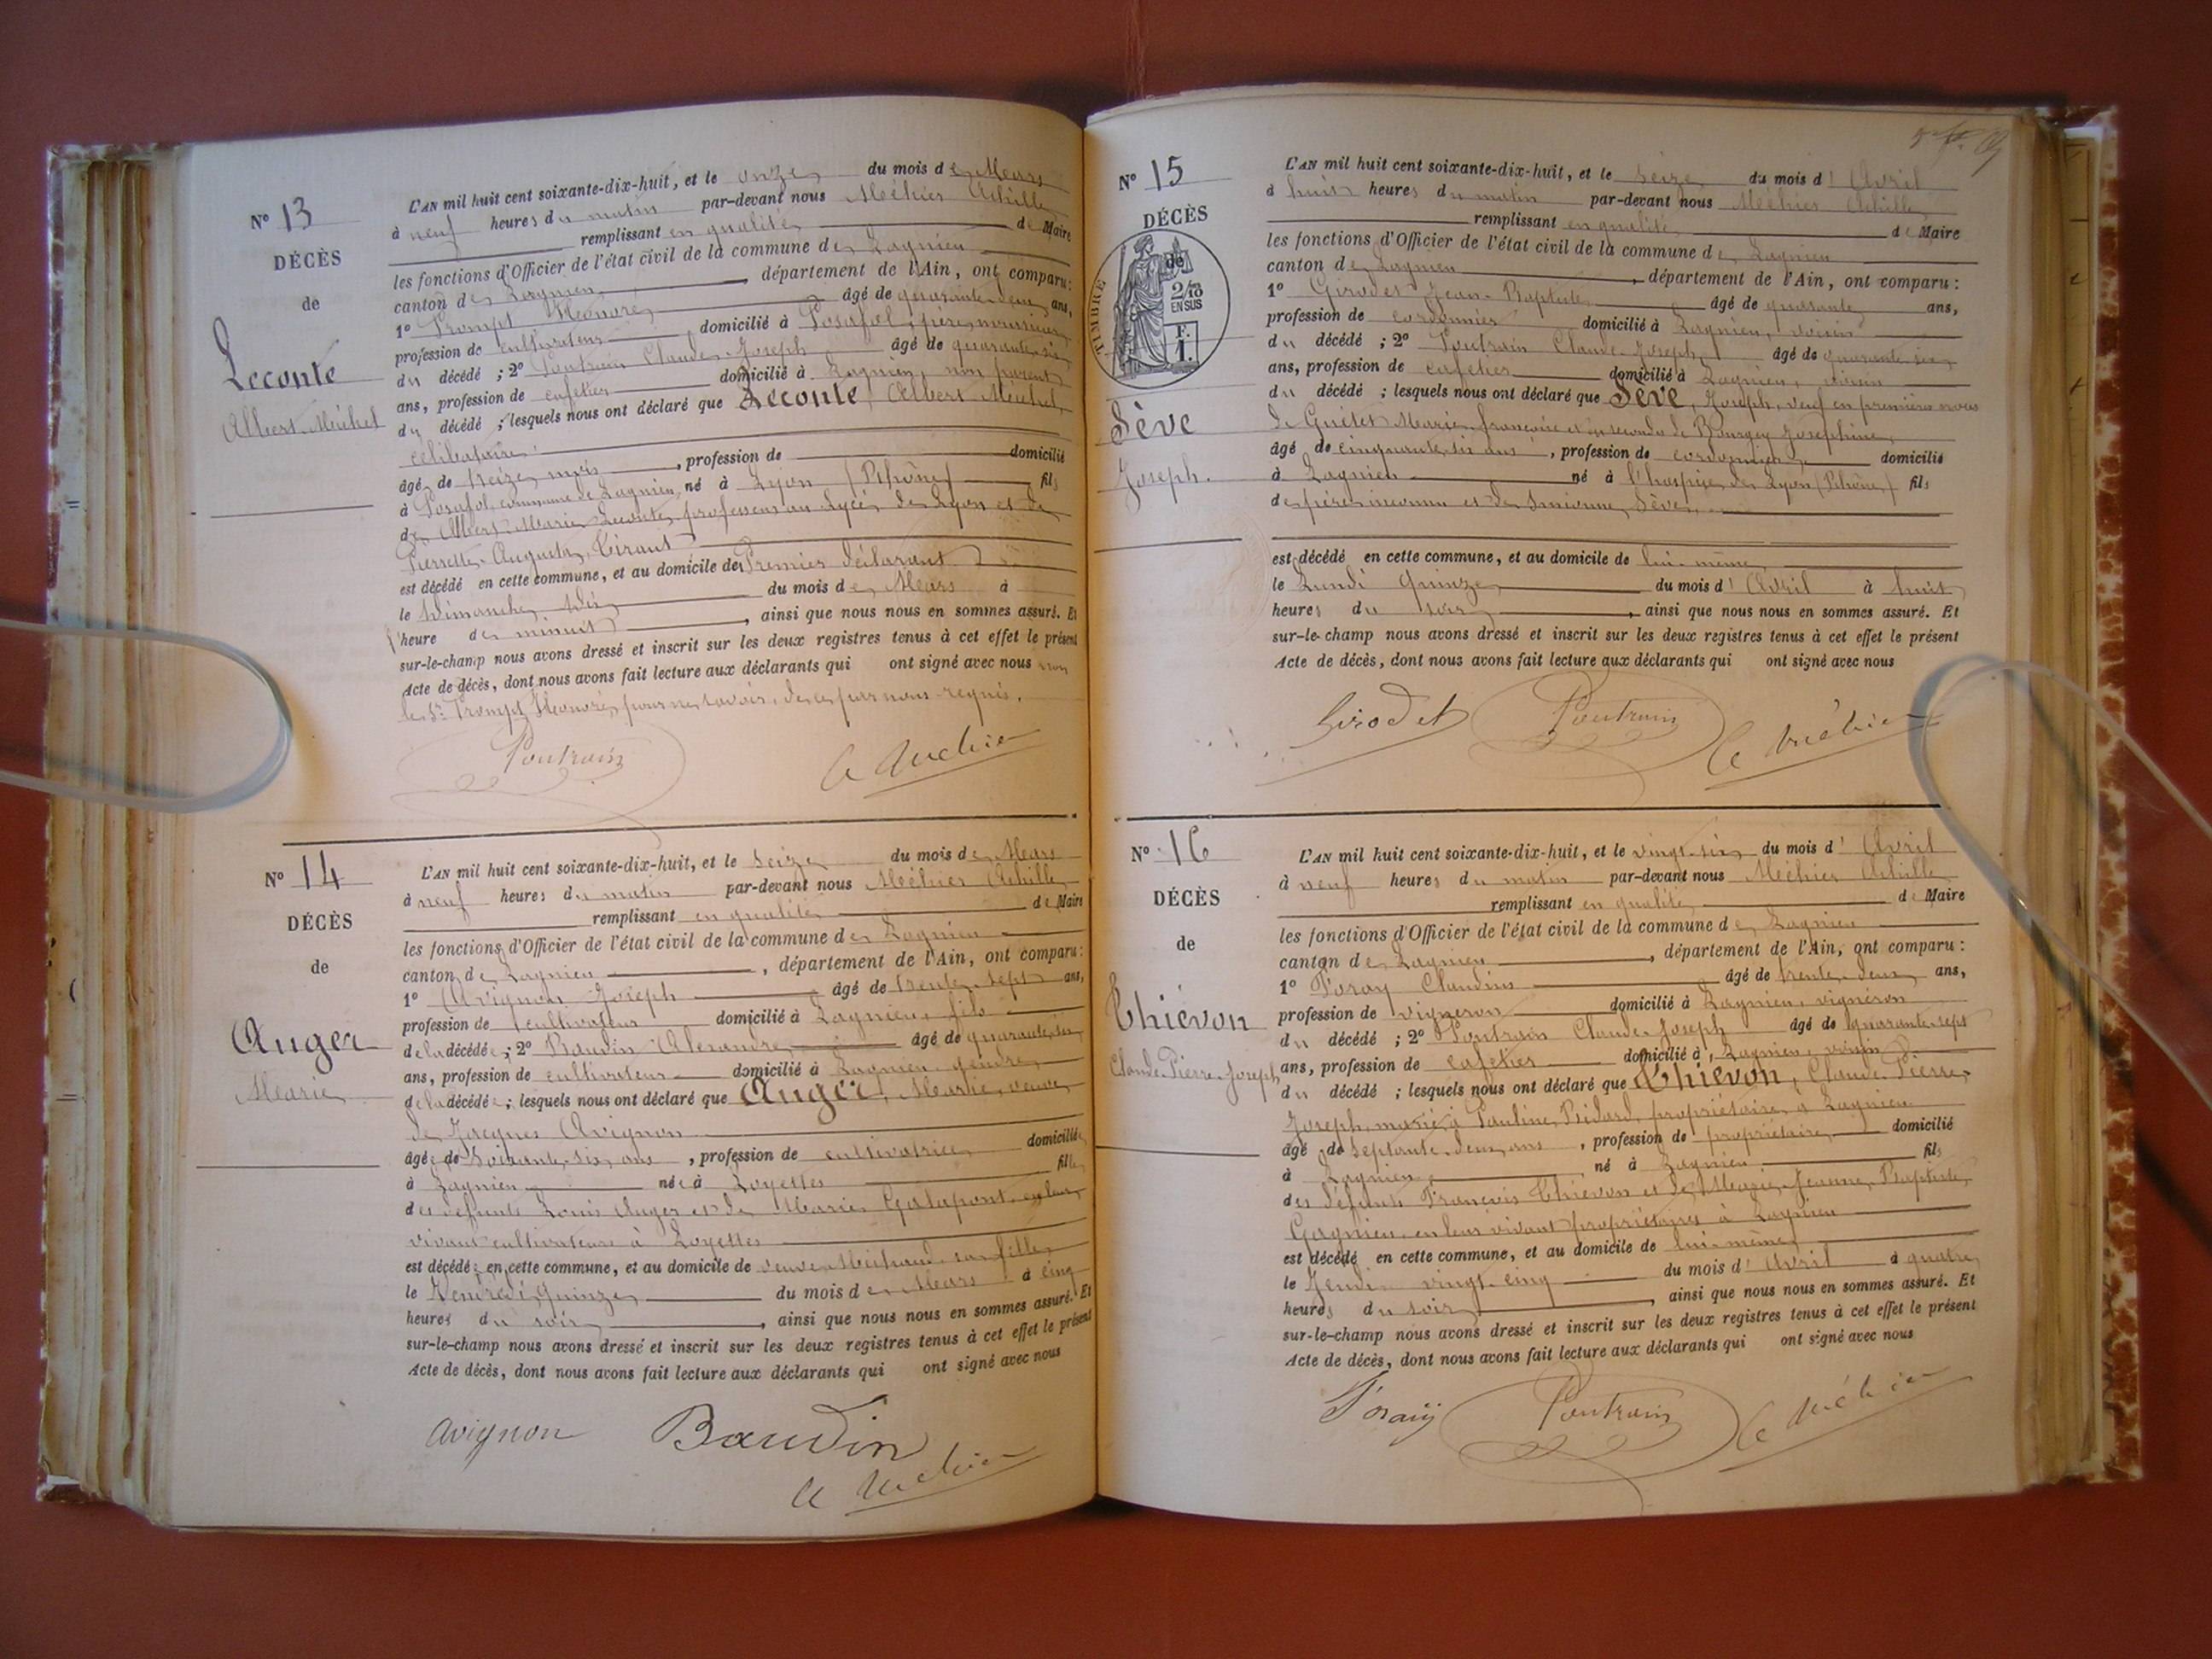 N° 13
DÉCÈS
de
Leconte
Albert-Michel
L'AN mil huit cent soixante-dix-huit, et le onze du mois de Mars
à neuf heures du matin par-devant nous Méhier Achille
remplissant en qualité de Maire
les fonctions d'Officier de l'état civil de la commune de Lagnieu
canton de Lagnieu, département de l'Ain, ont comparu:
1° Prompt Honoré âgé de quarante-deux ans,
profession de cultivateur domicilié à Posafol, père nourricier
du décédé ; 2° Poutrain Claude-Joseph âgé de quarante-six
ans, profession de cafetier domicilié à Lagnieu, non parent
du décédé ; lesquels nous ont déclaré que Leconte, Albert Michel,
célibataire
âgé de treize mois, profession de domicilié
à Posafol, commune de Lagnieu, né à Lyon (Rhône) fils
de Albert-Marie Leconte, professeur au Lycée de Lyon et de
Pierrette-Augusta Tirant
est décédé en cette commune, et au domicile du Premier déclarant
le Dimanche dix du mois de Mars à
l'heure de minuit, ainsi que nous nous en sommes assuré. Et
sur-le-champ nous avons dressé et inscrit sur les deux registres tenus à cet effet le présent
Acte de décès, dont nous avons fait lecture aux déclarants qui ont signé avec nous non
le Sr. Prompt Honoré, pour ne savoir, de ce par nous requis.
Poutrain
A Méhier
N° 14
DÉCÈS
de
Auger
Marie
L'AN mil huit cent soixante-dix-huit, et le seize du mois de Mars
à neuf heures du matin par-devant nous Méhier Achille
remplissant en qualité de Maire
les fonctions d'Officier de l'état civil de la commune de Lagnieu
canton de Lagnieu, département de l'Ain, ont comparu:
1° Avignon Joseph âgé de trente-sept ans,
profession de cultivateur domicilié à Lagnieu, fils
de la décédée ; 2° Baudin Alexandre âgé de quarante-six
ans, profession de cultivateur domicilié à Lagnieu gendre
de la décédée ; lesquels nous ont déclaré que Auger, Marie, veuve
de Jacques Avignon
âgée de soixante-six ans, profession de cultivatrice domiciliée
à Lagnieu née à Loyettes fille
des défunts Louis Auger et de Marie Galapont en leur
vivant cultivateurs à Loyettes
est décédée en cette commune, et au domicile de veuve Michaud sa fille
le Vendredi quinze du mois de Mars à cinq
heures du soir, ainsi que nous nous en sommes assuré. Et
sur-le-champ nous avons dressé et inscrit sur les deux registres tenus à cet effet le présent
Acte de décès, dont nous avons fait lecture aux déclarants qui ont signé avec nous
Avignon Baudin
A Méhier
N° 15
DÉCÈS
de
TIMBRE
2/10
EN SUS
F.
1.
Sève
Joseph.
L'AN mil huit cent soixante-dix-huit, et le seize du mois d'Avril
à huit heures du matin par-devant nous Méhier Achille
remplissant en qualité de Maire
les fonctions d'Officier de l'état civil de la commune de Lagnieu
canton de Lagnieu, département de l'Ain, ont comparu:
1° Girodet Jean-Baptiste âgé de quarante ans,
profession de cordonnier domicilié à Lagnieu, voisin
du décédé ; 2° Poutrain Claude-Joseph âgé de quarante-six
ans, profession de cafetier domicilié à Lagnieu, voisin
du décédé ; lesquels nous ont déclaré que Sève, Joseph, veuf en premières noces
de Guétet Marie-françoise et en secondes de Bourgey Joséphine,
âgé de cinquante-six ans, profession de cordonnier domicilié
à Lagnieu né à l'hospice de Lyon (Rhône) fils
de père inconnu et de Sève,
est décédé en cette commune, et au domicile de lui-même
le Lundi quinze du mois d'Avril à huit
heures du soir, ainsi que nous nous en sommes assuré. Et
sur-le-champ nous avons dressé et inscrit sur les deux registres tenus à cet effet le présent
Acte de décès, dont nous avons fait lecture aux déclarants qui ont signé avec nous
Girodet Poutrain A Méhier
N° 16
DÉCÈS
de
Thiévon
Claude-Pierre-Joseph
L'AN mil huit cent soixante-dix-huit, et le vingt-six du mois d'Avril
à neuf heures du matin par-devant nous Méhier Achille
remplissant en qualité de Maire
les fonctions d'Officier de l'état civil de la commune de Lagnieu
canton de Lagnieu, département de l'Ain, ont comparu:
1° Foray Claudius âgé de trente-deux ans,
profession de vigneron domicilié à Lagnieu, vignéron
du décédé ; 2° Poutrain Claude-Joseph âgé de quarante-sept
ans, profession de cafetier domicilié à Lagnieu, voisin
du décédé ; lesquels nous ont déclaré que Thiévon, Claude-Pierre-
Joseph, marié à Pauline Bidard, propriétaire à Lagnieu
âgé de septante-deux ans, profession de propriétaire domicilié
à Lagnieu, né à Lagnieu fils
des défunts François Thiévon et de Marie-Jeanne Baptiste
Gagnieu, en leur vivant propriétaires à Lagnieu
est décédé en cette commune, et au domicile de lui-même
le Jeudi vingt-cinq du mois d'Avril à quatre
heures du soir, ainsi que nous nous en sommes assuré. Et
sur-le-champ nous avons dressé et inscrit sur les deux registres tenus à cet effet le présent
Acte de décès, dont nous avons fait lecture aux déclarants qui ont signé avec nous
Foray Poutrain A Méhier